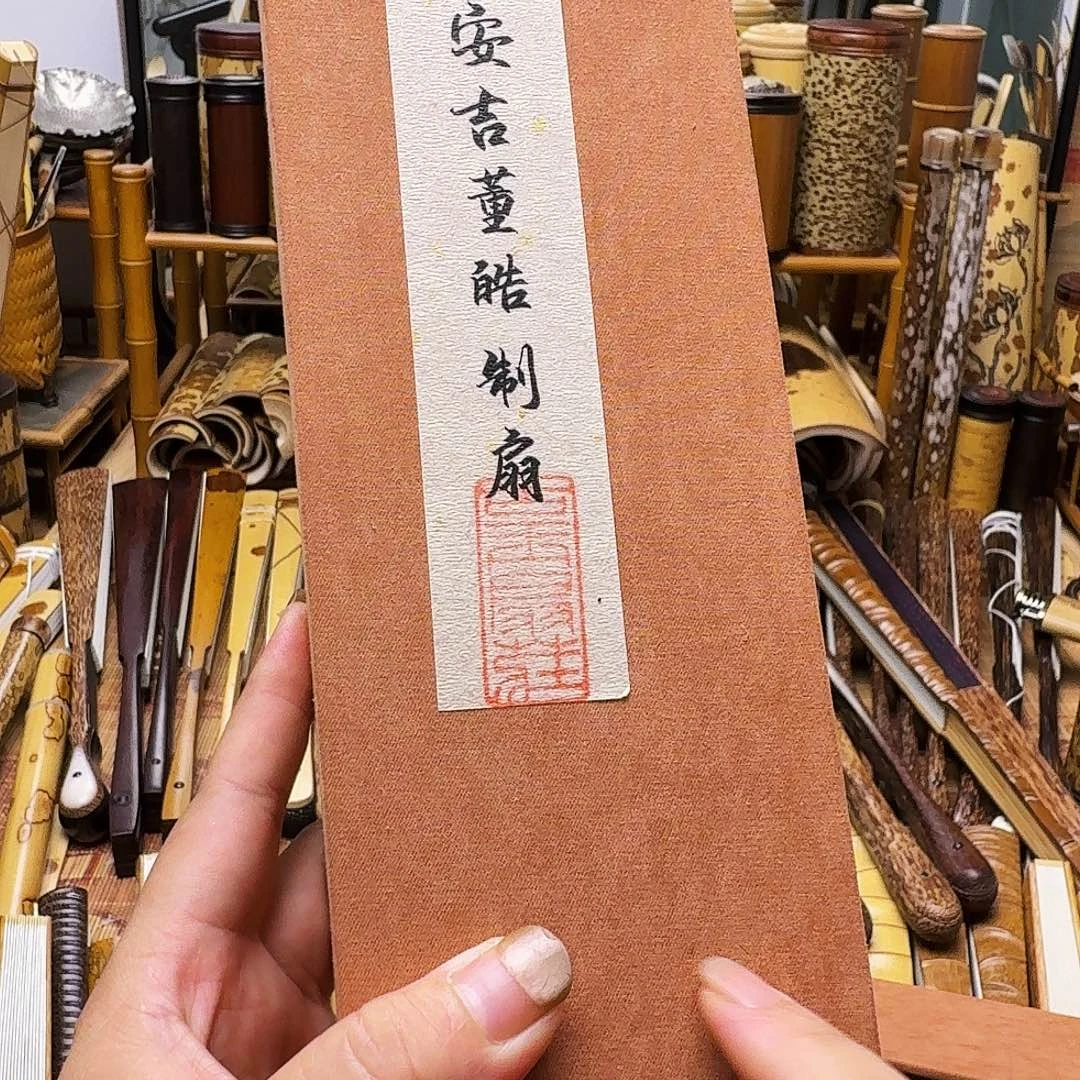 安吉董皓制扇